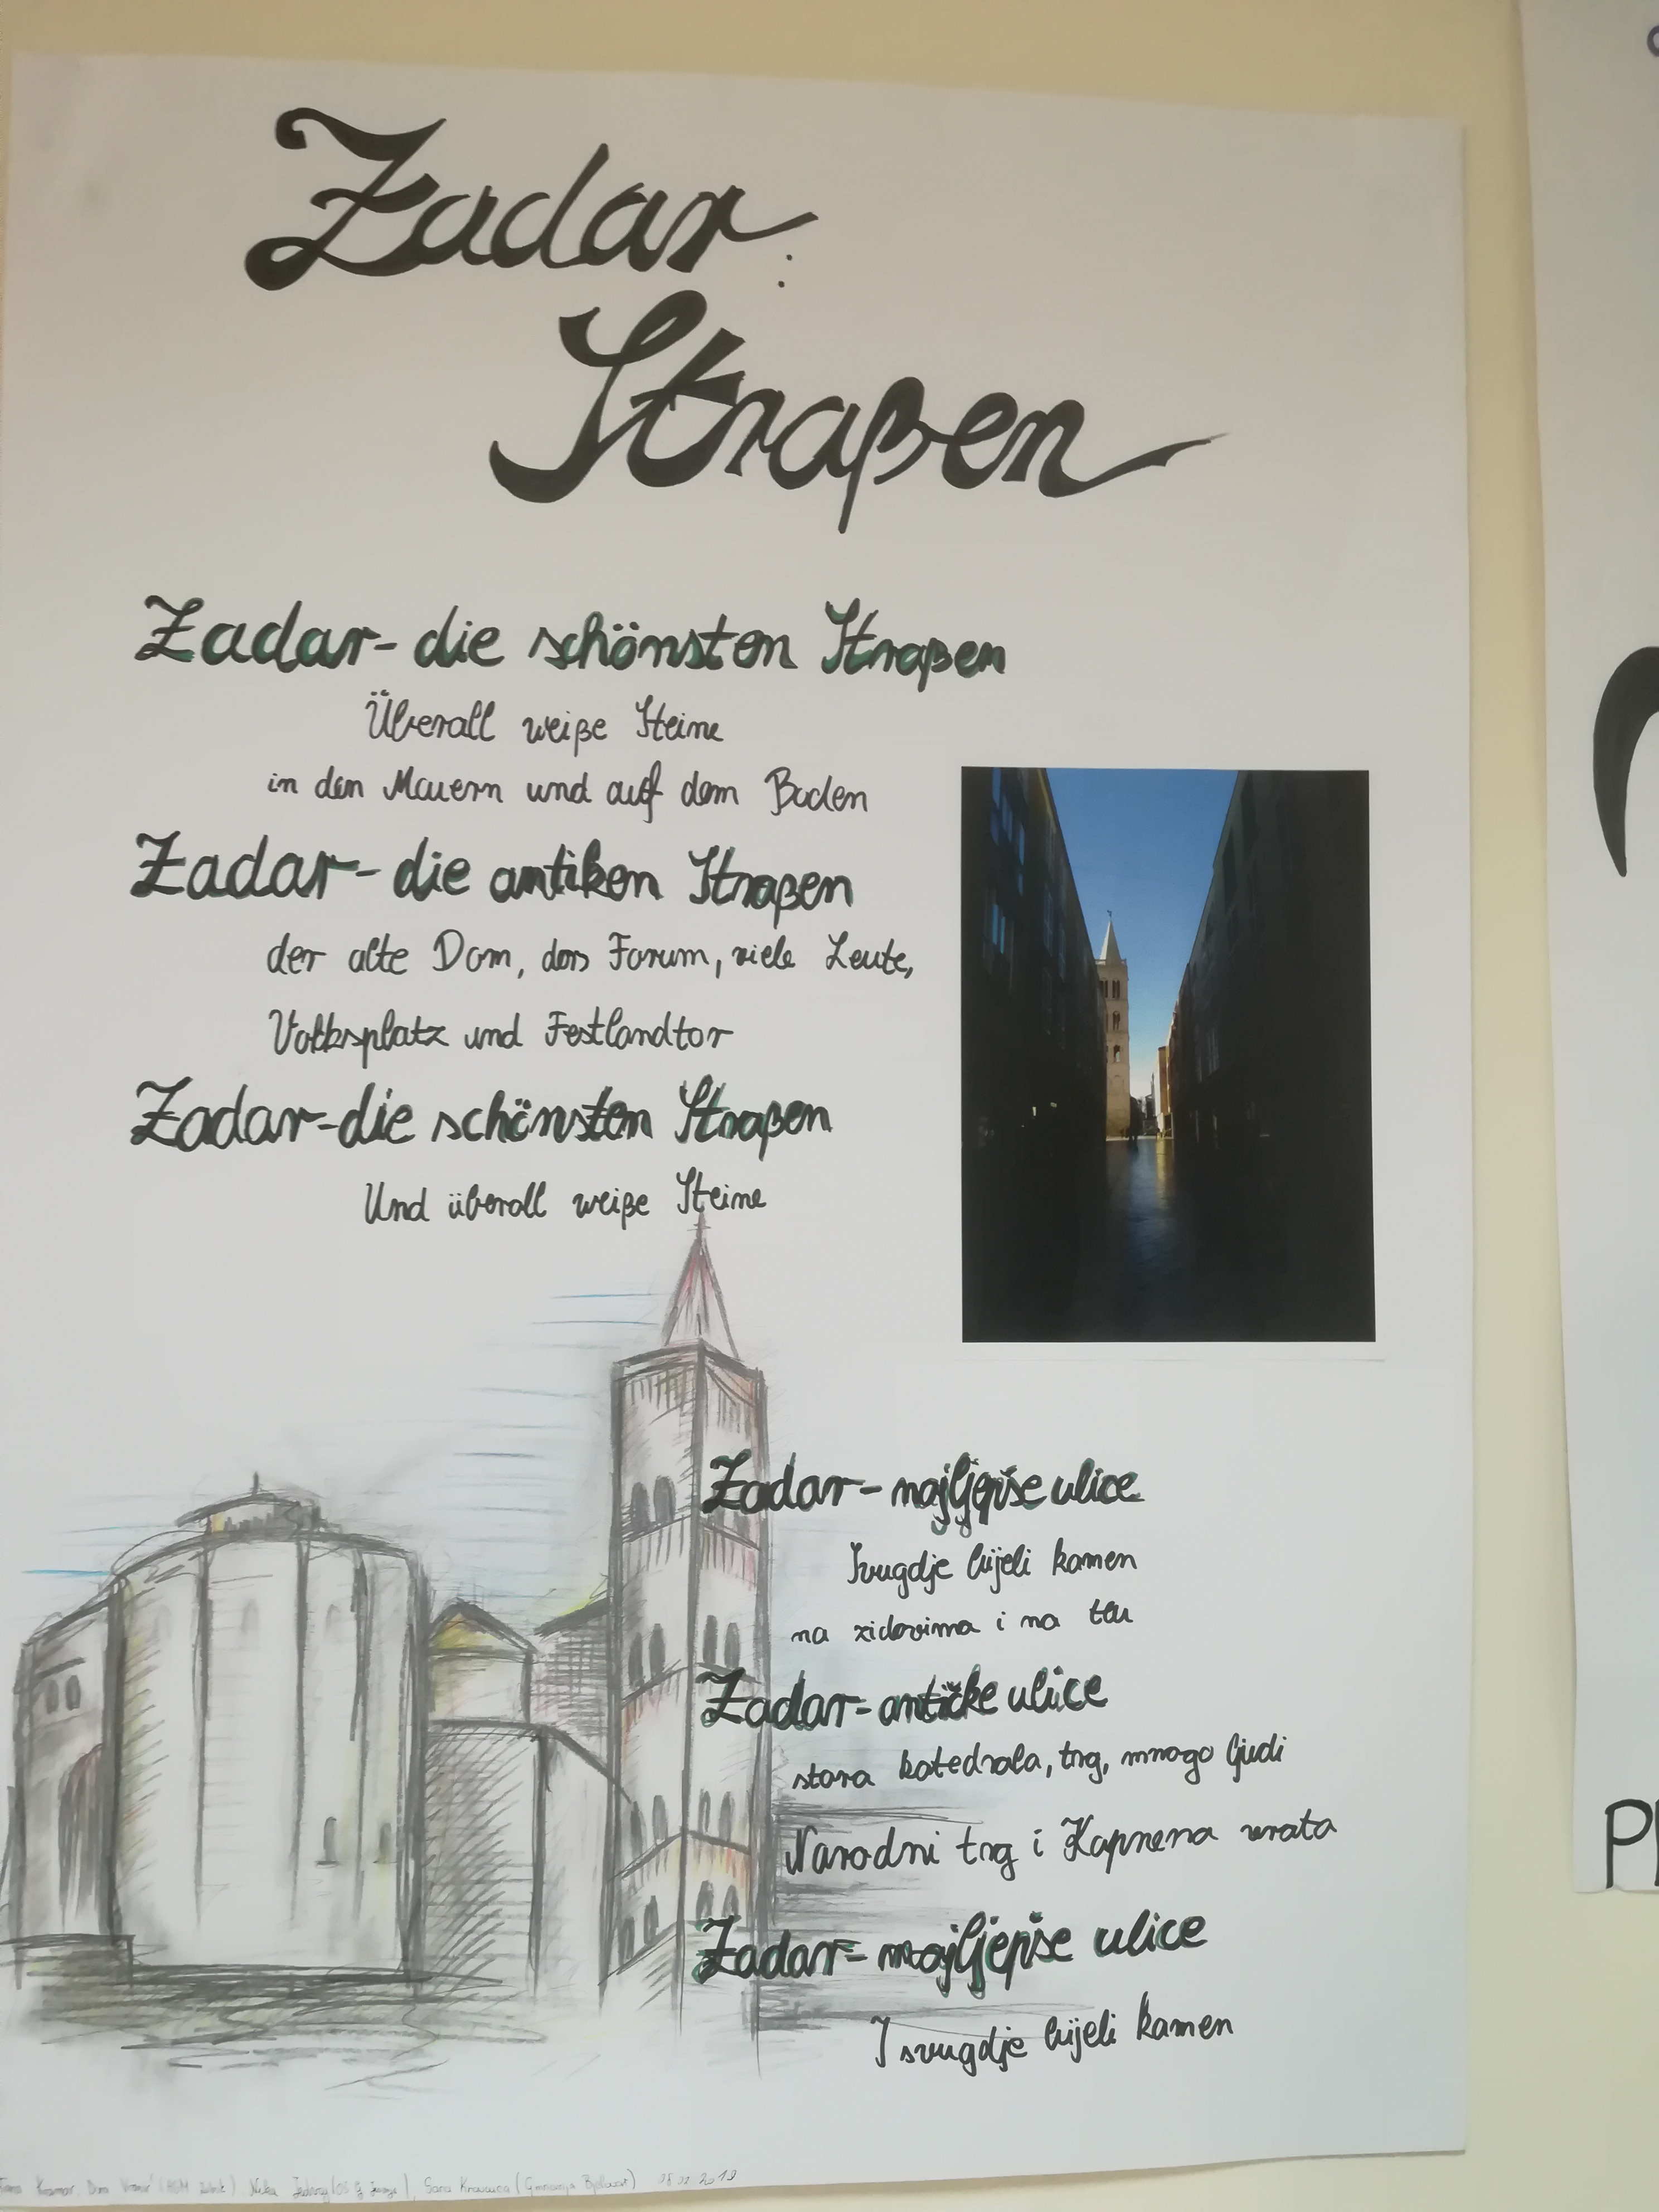 Zadar:
Straßen
Zadar - die schönsten Straßen
Überall weiße Steine
in den Mauern und auf dem Boden
Zadar - die antiken Straßen
der alte Dom, das Forum, viele Leute,
Volksplatz und Festlandtor
Zadar - die schönsten Straßen
Und überall weiße Steine
Zadar - najljepše ulice
Svugdje bijeli kamen
na zidovima i na tlu
Zadar - antičke ulice
stara katedrala, trg, mnogo ljudi
Narodni trg i Kopnena vrata
Zadar - najljepše ulice
I svugdje bijeli kamen
Kramar, Nika Sara (Gimnazija Bjelovar) 2019